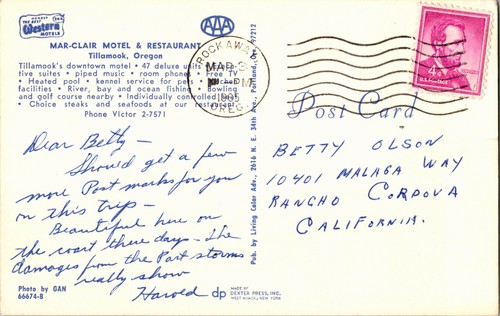 MEMBER
THE BEST
Western
MOTELS
AAA
MAR-CLAIR MOTEL & RESTAURANT
Tillamook, Oregon
Tillamook's downtown motel • 47 deluxe units
tive suites • piped music • room phones Free TV
• Heated pool • kennel service for pets •
facilities • River, bay and ocean fishing Bowling
and golf course nearby • Individually controlled
• Choice steaks and seafoods at our restaurant.
Phone VIctor 2-7571
ROCKAWAY
MAR 3
PM
1965
OREG.
Post Card
Dear Betty —
Should get a few
more Post marks for you
on this trip —
Beautiful here on
the coast these days. The
damages from the Past storms
really show
Harold
BETTY OLSON
10401 MALAGA WAY
RANCHO CORDOVA
CALIFORNIA.
Pub. by Living Color Adv., 2616 N.E. 34th Ave., Portland, Ore. 97212
Photo by GAN
66674-B
dp
MADE BY
DEXTER PRESS, INC.
WEST NYACK, NEW YORK